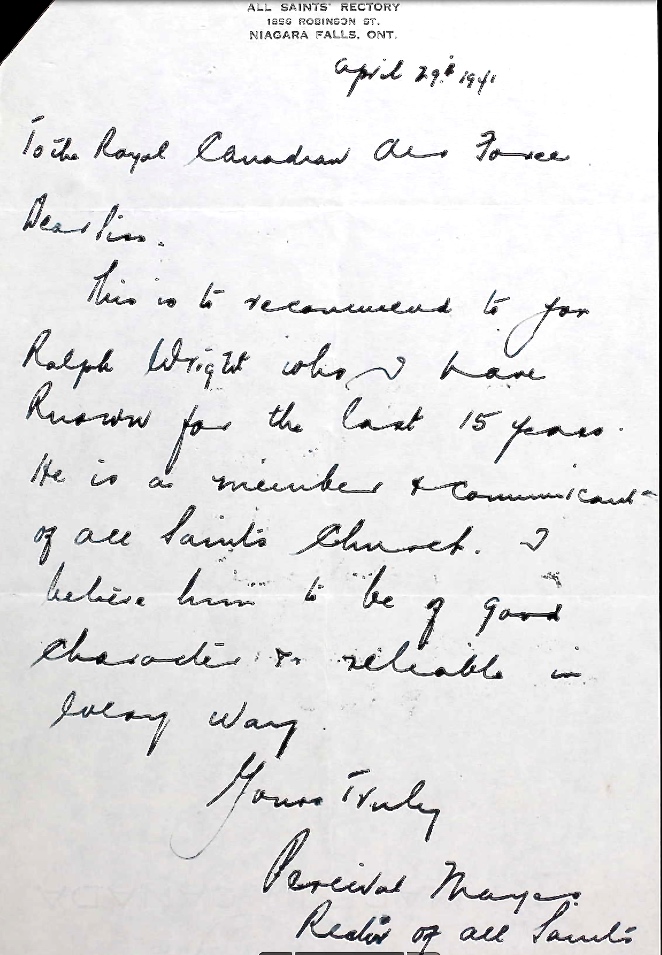 ALL SAINTS' RECTORY
1896 ROBINSON ST.
NIAGARA FALLS, ONT.
April 29th 1941
To the Royal Canadian Air Force
Dear Sirs.
This is to recommend to you
Ralph Wright who I have
known for the last 15 years.
He is a member & communicant
of all Saints Church. I
believe him to be of good
character & reliable in
every way.
Yours Truly
Percival Mayes
Rector of all Saints